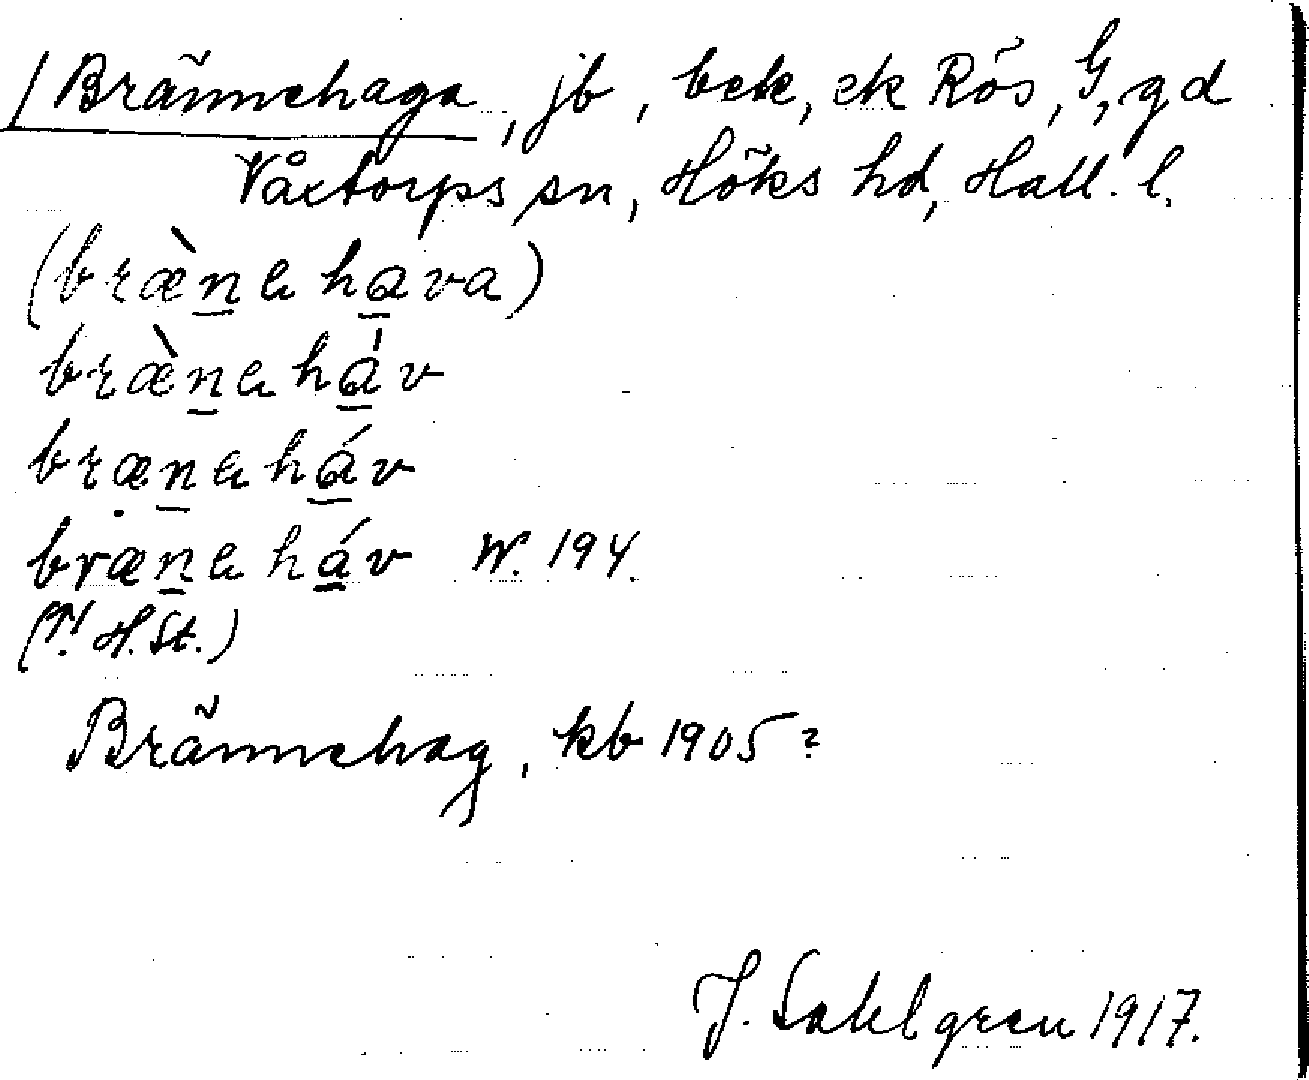 Brännehaga, jb, bek, ek Rös, G, gd
Våxtorps sn, Höks hd, Hall. l.
(bræ̀n̲e ha̲va)
bræ̀n̲e há̲v
bræn̲e há̲v
bræn̲e há̲v W. 194.
H. St.)
Brännehag, kb 1905?
J. Sahlgren 1917.